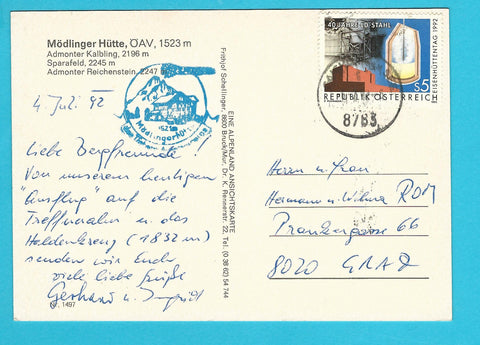 Mödlinger Hütte, ÖAV, 1523 m
Admonter Kalbling, 2196 m
Sparafeld, 2245 m
Admonter Reichenstein, 2247
4. Juli 92
Mödlinger Hütte
Liebe Bergfreunde!
Von unserem heutigen
"Ausflug" auf die
Treffneralm u. das
Heldenkreuz (1832 m)
senden wir Euch
viele liebe Grüße
Gerhard u. Ingrid
Nr. 1497
EINE ALPENLAND ANSICHTSKARTE
Frithjof Schellinger, 8600 Bruck/Mur, Dr. K. Rennerstr. 22, Tel. (0 38 62) 54 744
40 JAHRE LD STAHL
EISENHÜTTENTAG 1992
S5
REPUBLIK ÖSTERREICH
8783
Herrn und Frau
Hermann u. ROM
Prankergasse 66
8020 GRAZ